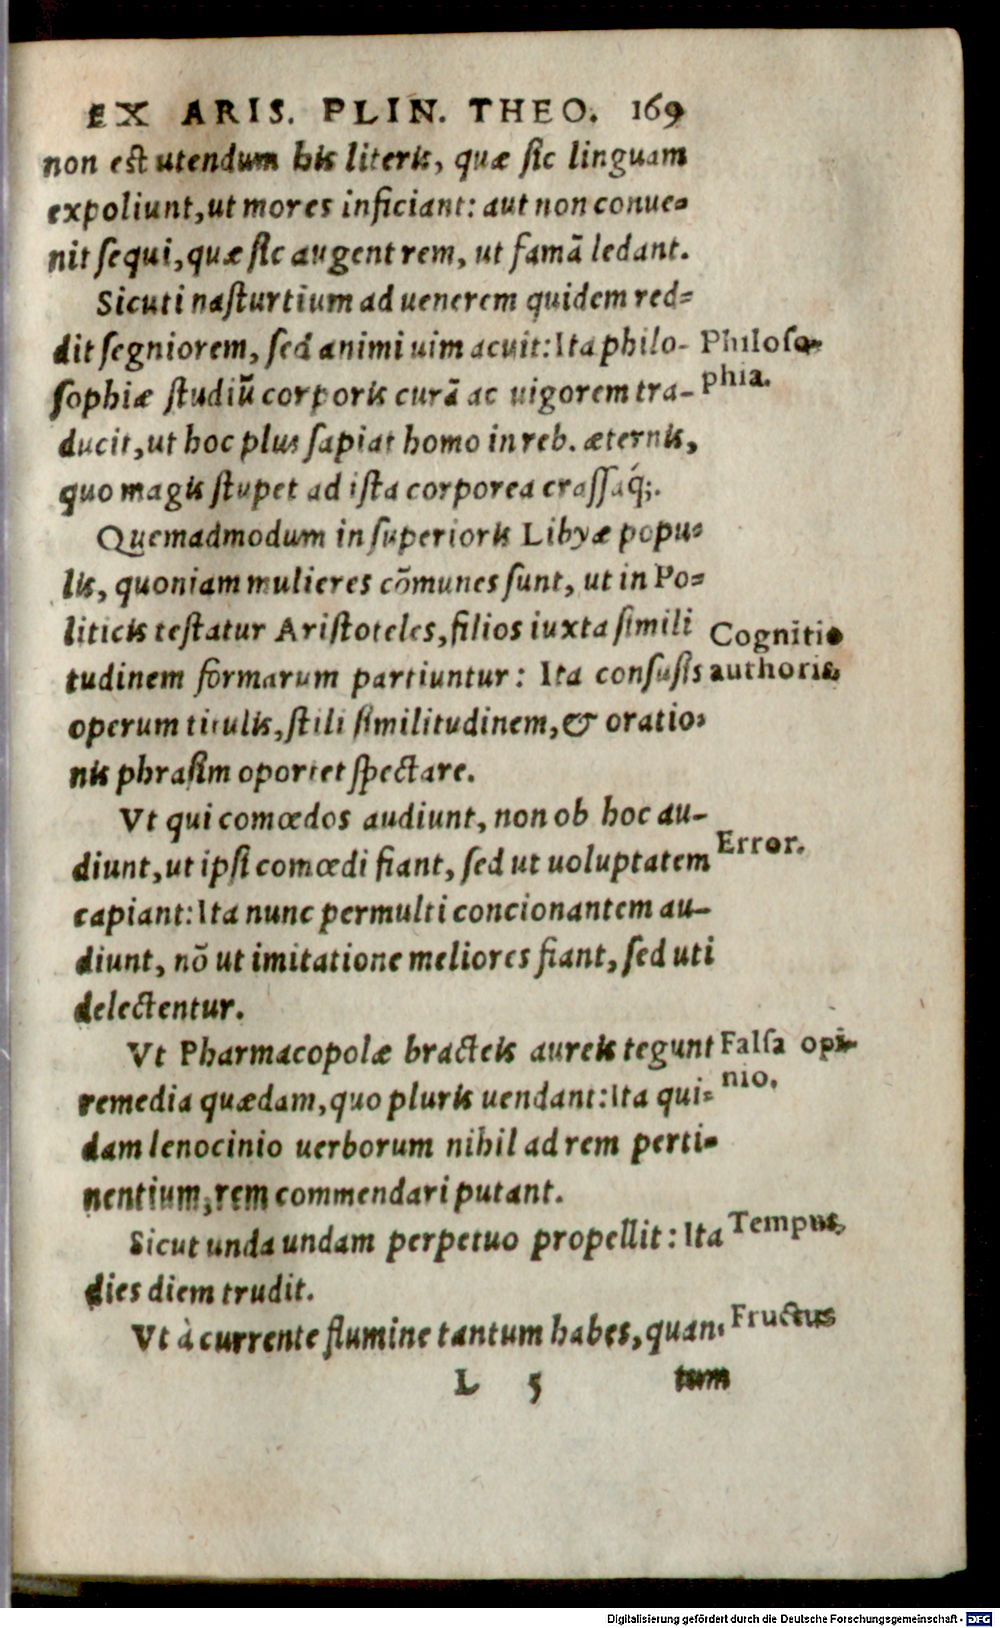 EX ARIS. PLIN. THEO. 169
non est utendum his literis, quæ sic linguam
expoliunt, ut mores inficiant: aut non conue-
nit sequi, quæ sic augent rem, ut famã ledant.
Sicuti nasturtium ad uenerem quidem red-
dit segniorem, sed animi uim acuit: Ita philo- Philoso-
sophiæ studiũ corporis curã ac uigorem tra- phia.
ducit, ut hoc plus sapiat homo in reb. æternis,
quo magis stupet ad ista corporea crassaq́;.
Quemadmodum in superioris Libyæ popu-
lis, quoniam mulieres cõmunes sunt, ut in Po-
liticis testatur Aristoteles, filios iuxta simili Cognitio
tudinem formarum partiuntur: Ita confusis authoris.
operum titulis, stili similitudinem, & oratio-
nis phrasim oportet spectare.
Vt qui comœdos audiunt, non ob hoc au-
diunt, ut ipsi comœdi fiant, sed ut uoluptatem Error.
capiant: Ita nunc permulti concionantem au-
diunt, nõ ut imitatione meliores fiant, sed uti
delectentur.
Vt Pharmacopolæ bracteis aureis tegunt Falsa opi-
remedia quædam, quo pluris uendant: Ita qui- nio.
dam lenocinio uerborum nihil ad rem perti-
nentium, rem commendari putant.
Sicut unda undam perpetuo propellit: Ita Tempus.
dies diem trudit.
Vt à currente flumine tantum habes, quan- Fructus
L 5 tum
Digitalisierung gefördert durch die Deutsche Forschungsgemeinschaft - DFG